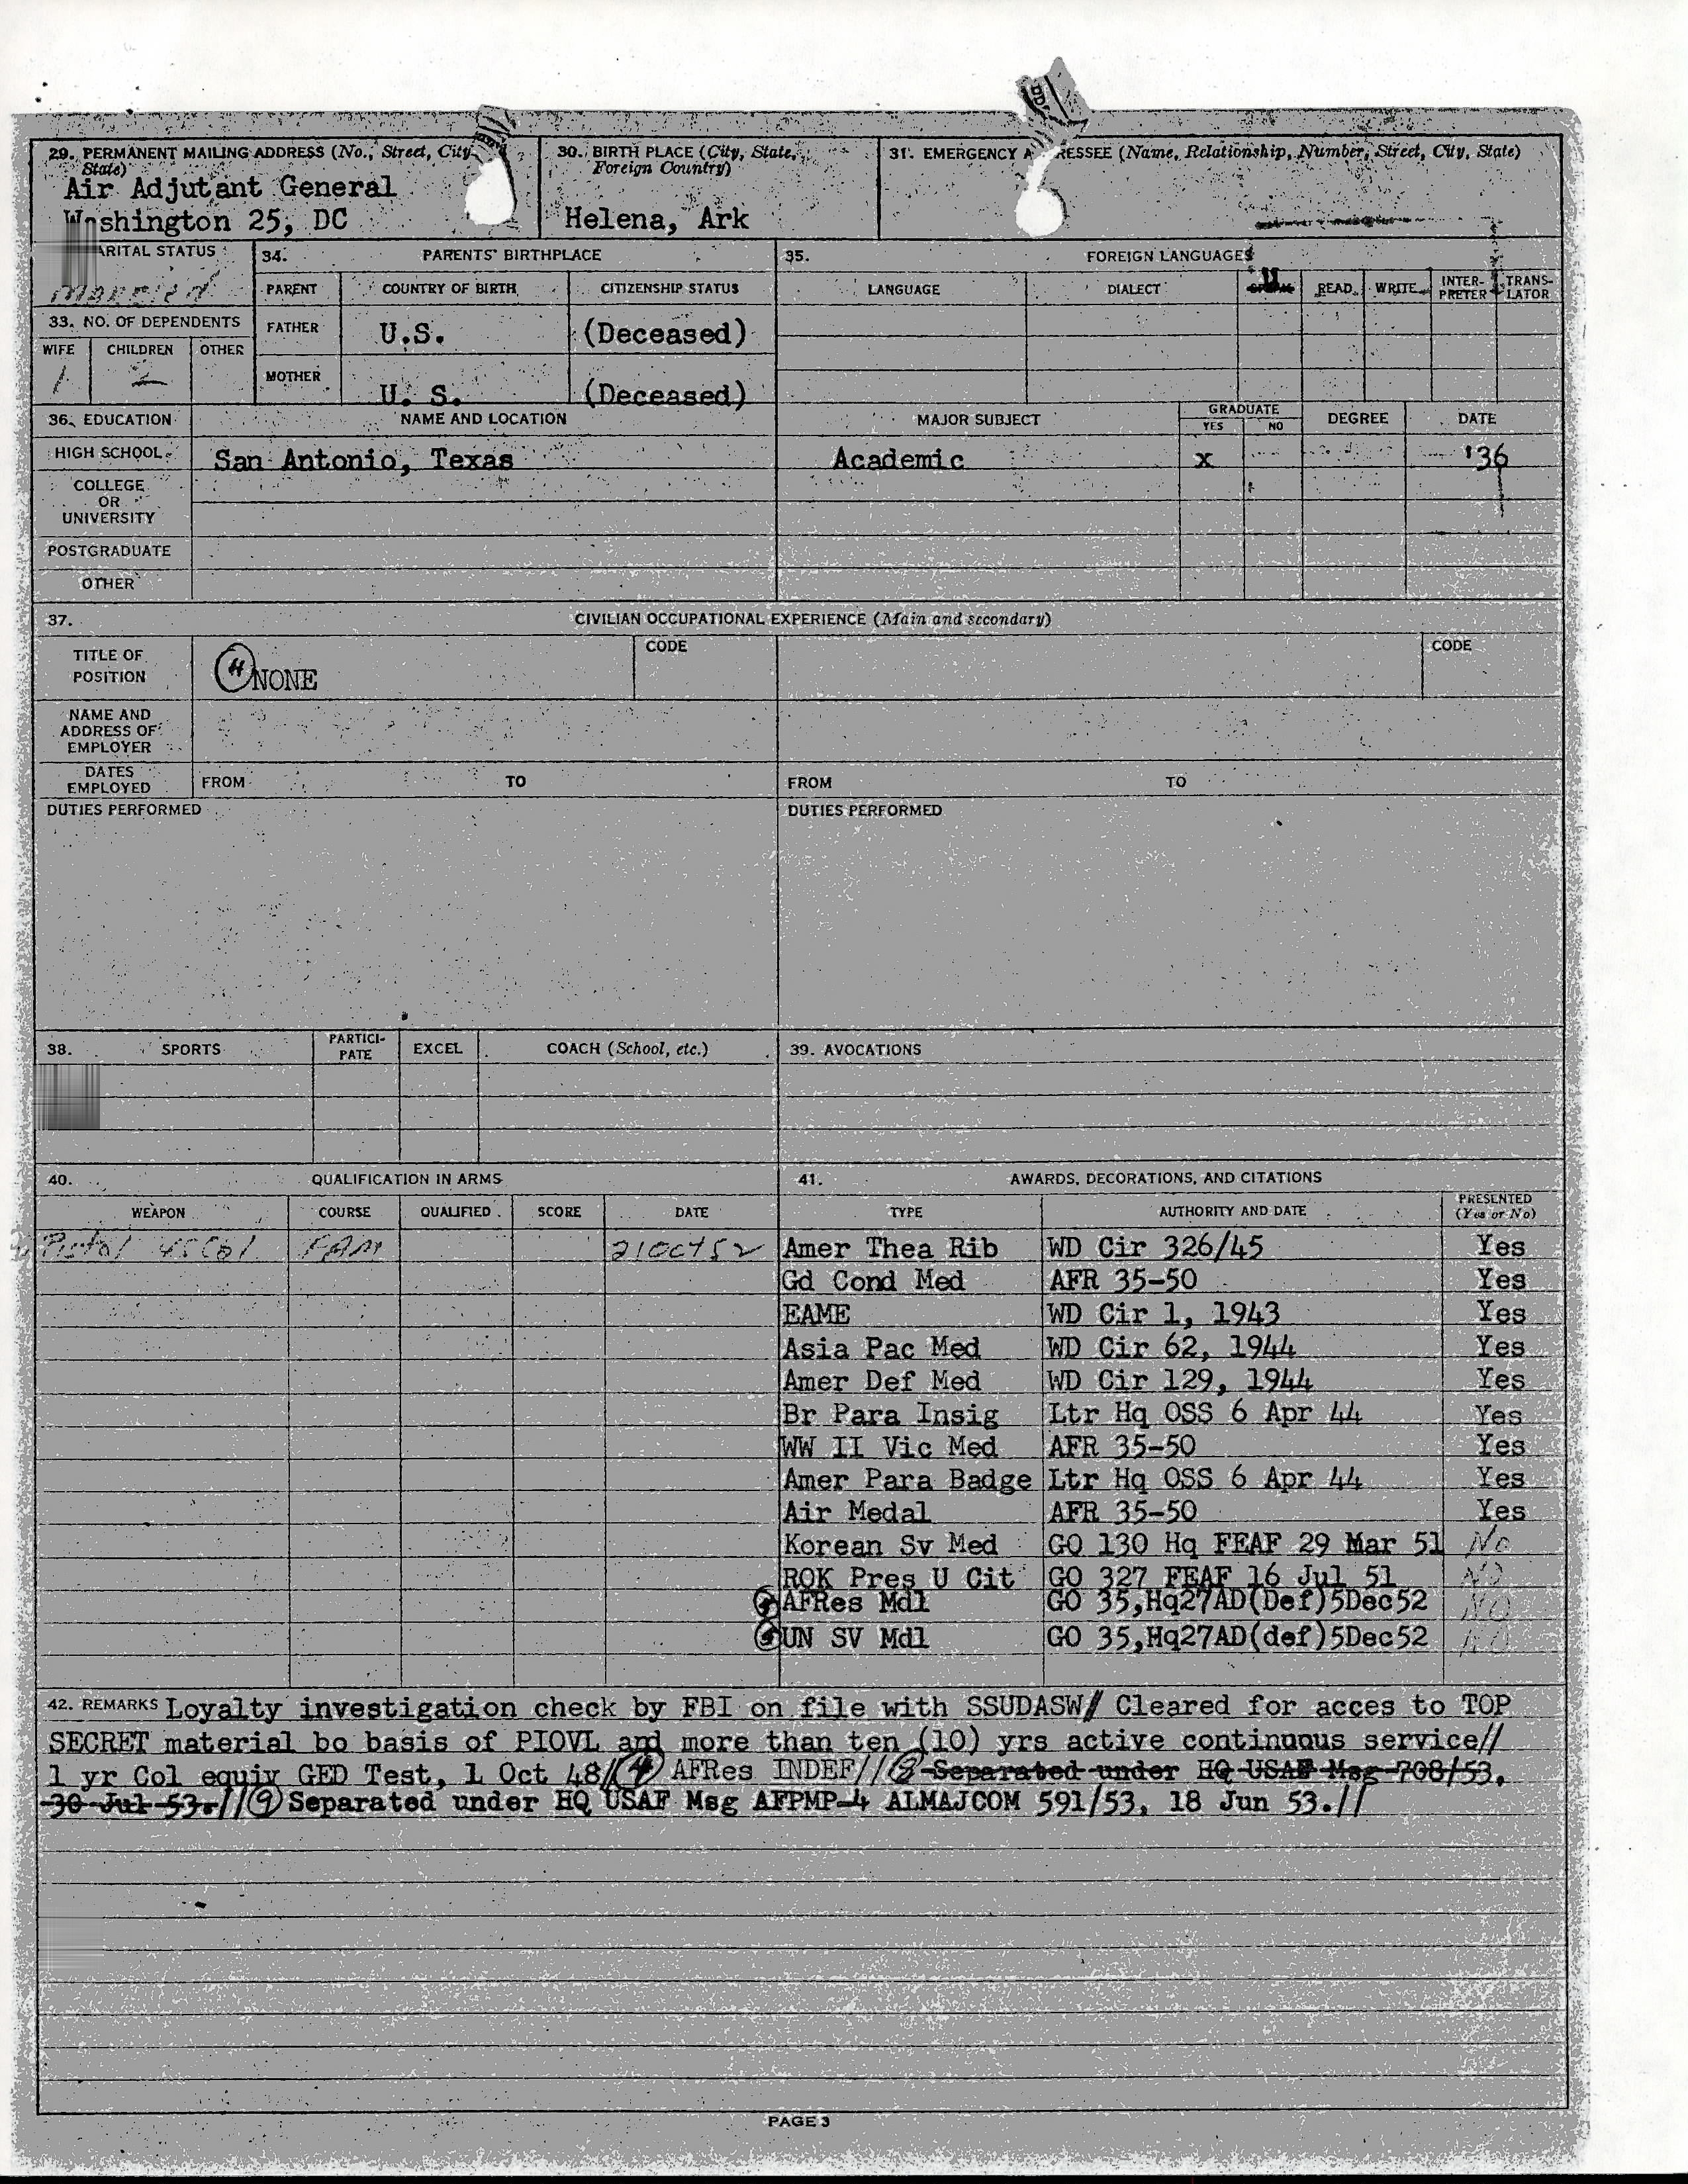 29. PERMANENT MAILING ADDRESS (No., Street, City, State)
Air Adjutant General
Washington 25, DC
30. BIRTH PLACE (City, State, Foreign Country)
Helena, Ark
31. EMERGENCY ADDRESSEE (Name, Relationship, Number, Street, City, State)
MARITAL STATUS
Married
33. NO. OF DEPENDENTS
WIFE CHILDREN OTHER
1 2
34. PARENTS' BIRTHPLACE
PARENT COUNTRY OF BIRTH CITIZENSHIP STATUS
FATHER U.S. (Deceased)
MOTHER U. S. (Deceased)
35. FOREIGN LANGUAGES
LANGUAGE DIALECT SPEAK READ WRITE INTER-PRETER TRANS-LATOR
36. EDUCATION NAME AND LOCATION MAJOR SUBJECT GRADUATE YES NO DEGREE DATE
HIGH SCHOOL San Antonio, Texas Academic x '36
COLLEGE OR UNIVERSITY
POSTGRADUATE
OTHER
37. CIVILIAN OCCUPATIONAL EXPERIENCE (Main and secondary)
TITLE OF POSITION (4) NONE CODE CODE
NAME AND ADDRESS OF EMPLOYER
DATES EMPLOYED FROM TO FROM TO
DUTIES PERFORMED DUTIES PERFORMED
38. SPORTS PARTICI-PATE EXCEL COACH (School, etc.) 39. AVOCATIONS
40. QUALIFICATION IN ARMS
WEAPON COURSE QUALIFIED SCORE DATE
Pistol 45Cal FAM 21Oct52
41. AWARDS, DECORATIONS, AND CITATIONS
TYPE AUTHORITY AND DATE PRESENTED (Yes or No)
Amer Thea Rib WD Cir 326/45 Yes
Gd Cond Med AFR 35-50 Yes
EAME WD Cir 1, 1943 Yes
Asia Pac Med WD Cir 62, 1944 Yes
Amer Def Med WD Cir 129, 1944 Yes
Br Para Insig Ltr Hq OSS 6 Apr 44 Yes
WW II Vic Med AFR 35-50 Yes
Amer Para Badge Ltr Hq OSS 6 Apr 44 Yes
Air Medal AFR 35-50 Yes
Korean Sv Med GO 130 Hq FEAF 29 Mar 51 No
ROK Pres U Cit GO 327 FEAF 16 Jul 51 NO
AFRes Mdl GO 35,Hq27AD(Def)5Dec52 NO
UN SV Mdl GO 35,Hq27AD(def)5Dec52 NO
42. REMARKS Loyalty investigation check by FBI on file with SSUDASW// Cleared for acces to TOP
SECRET material bo basis of PIOVL and more than ten (10) yrs active continuous service//
1 yr Col equiv GED Test, 1 Oct 48//(4) AFRes INDEF//(8) Separated under HQ USAF Msg 708/53,
30 Jul 53.//(9) Separated under HQ USAF Msg AFPMP-4 ALMAJCOM 591/53, 18 Jun 53.//
PAGE 3